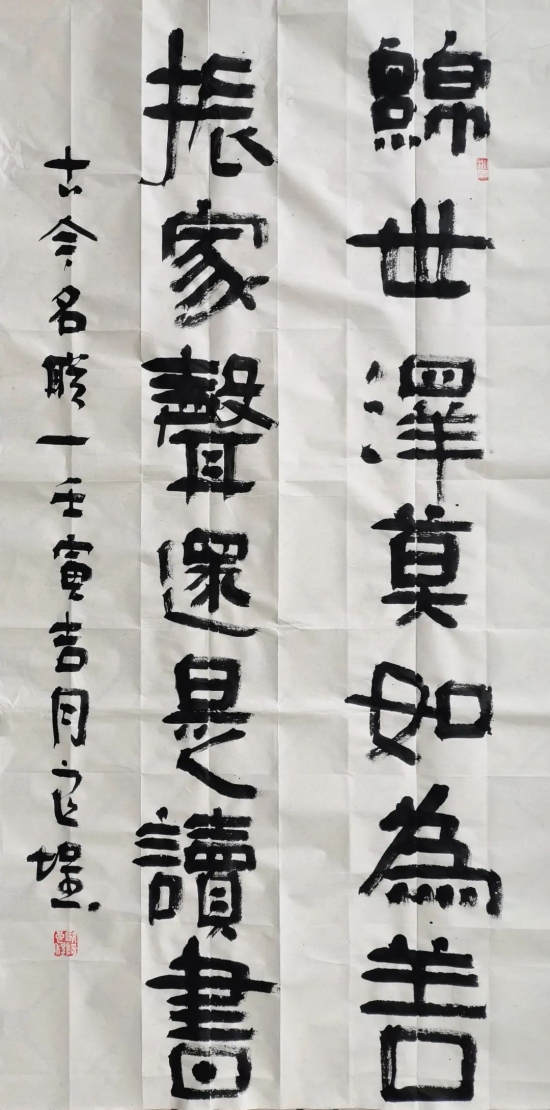 綿世澤莫如為善
振家聲還是讀書
古今名聯一壬寅吉月